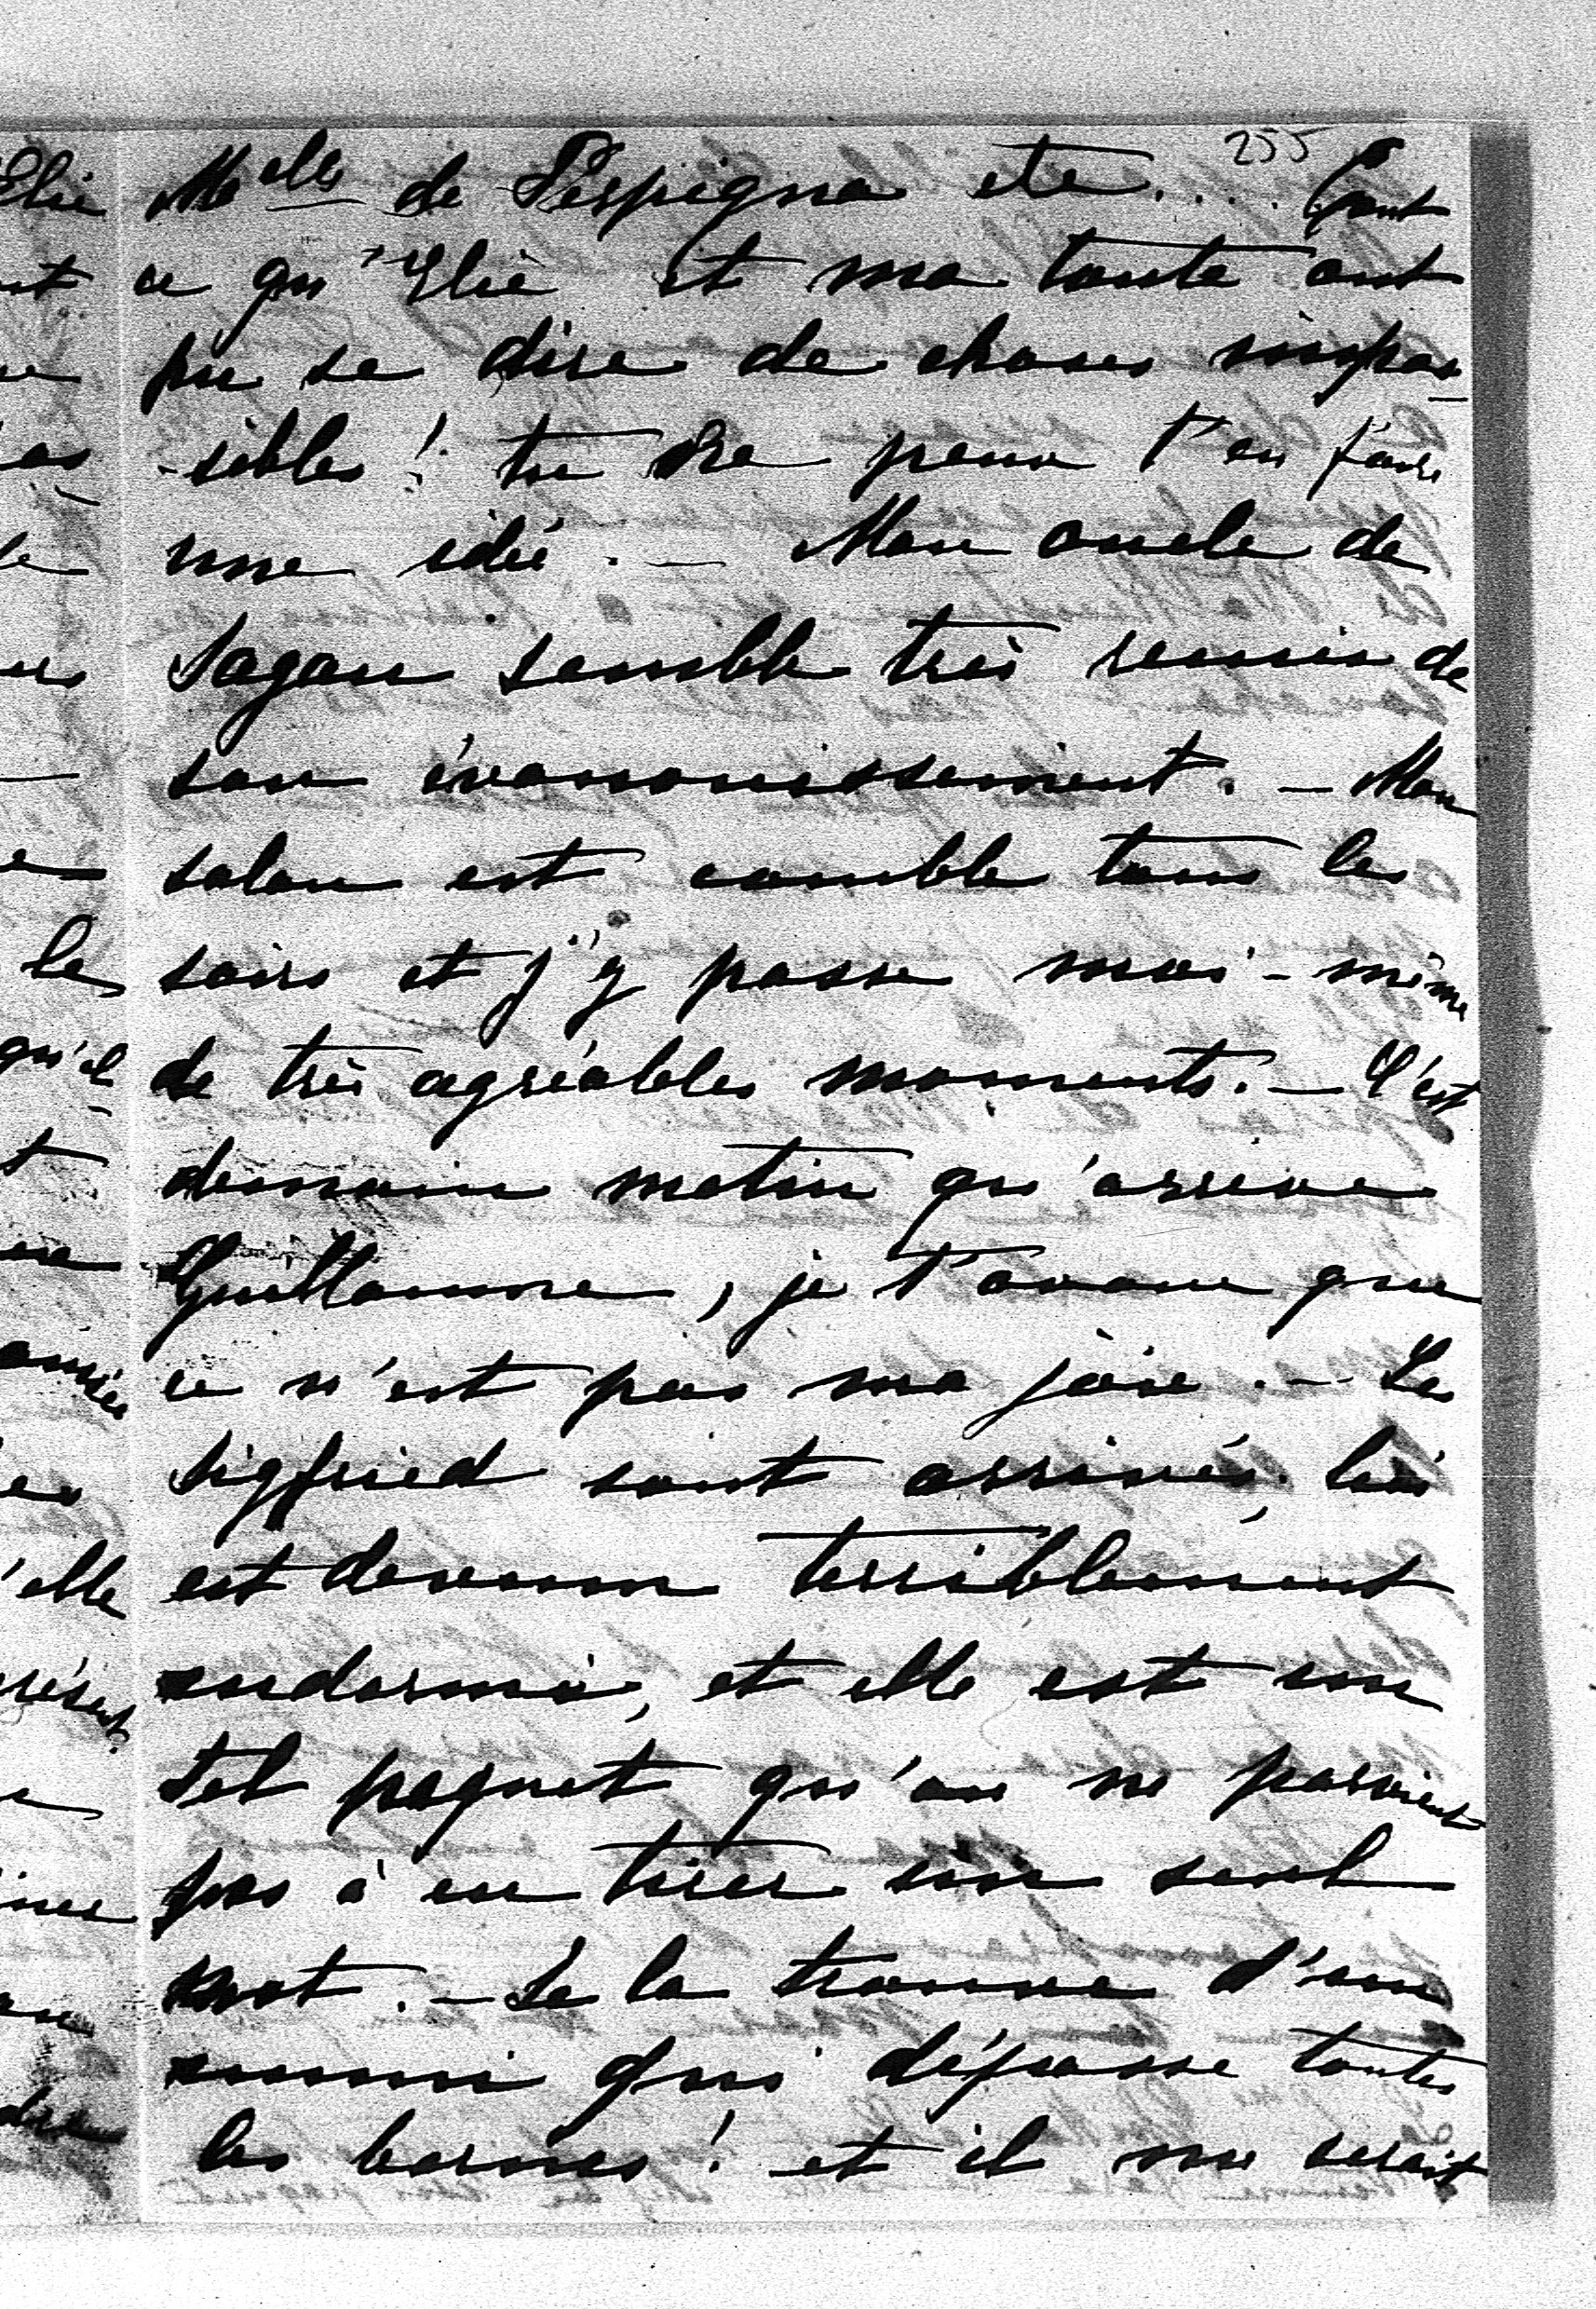 255
Melles de Perpigna etc.... Tout
ce qu'Elie et ma tante ont
pu se dire de choses impos
-sibles ! tu ne peux t'en faire
une idée. — Mon oncle de
Sagan semble très remis de
son évanouissement. — Mon
salon est comble tous les
soirs et j'y passe moi-même
de très agréables moments. — C'est
demain matin qu'arrive
Guillaume, je t'avoue que
ce n'est pas ma joie. — Les
Sigfried sont arrivés, lui
est devenu terriblement
endormi, et elle est un
tel paquet qu'on ne parvient
pas à en tirer un seul
mot. — Je la trouve d'un
ennui qui dépasse toutes
les bornes ! et il me serait